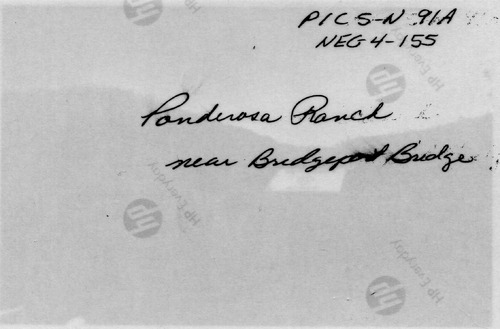 PICS-N 91A
NEG 4-155
Ponderosa Ranch
near Bridgeport Bridge
hp HP Everyday
hp HP Everyday
hp HP Everyday
hp HP Everyday